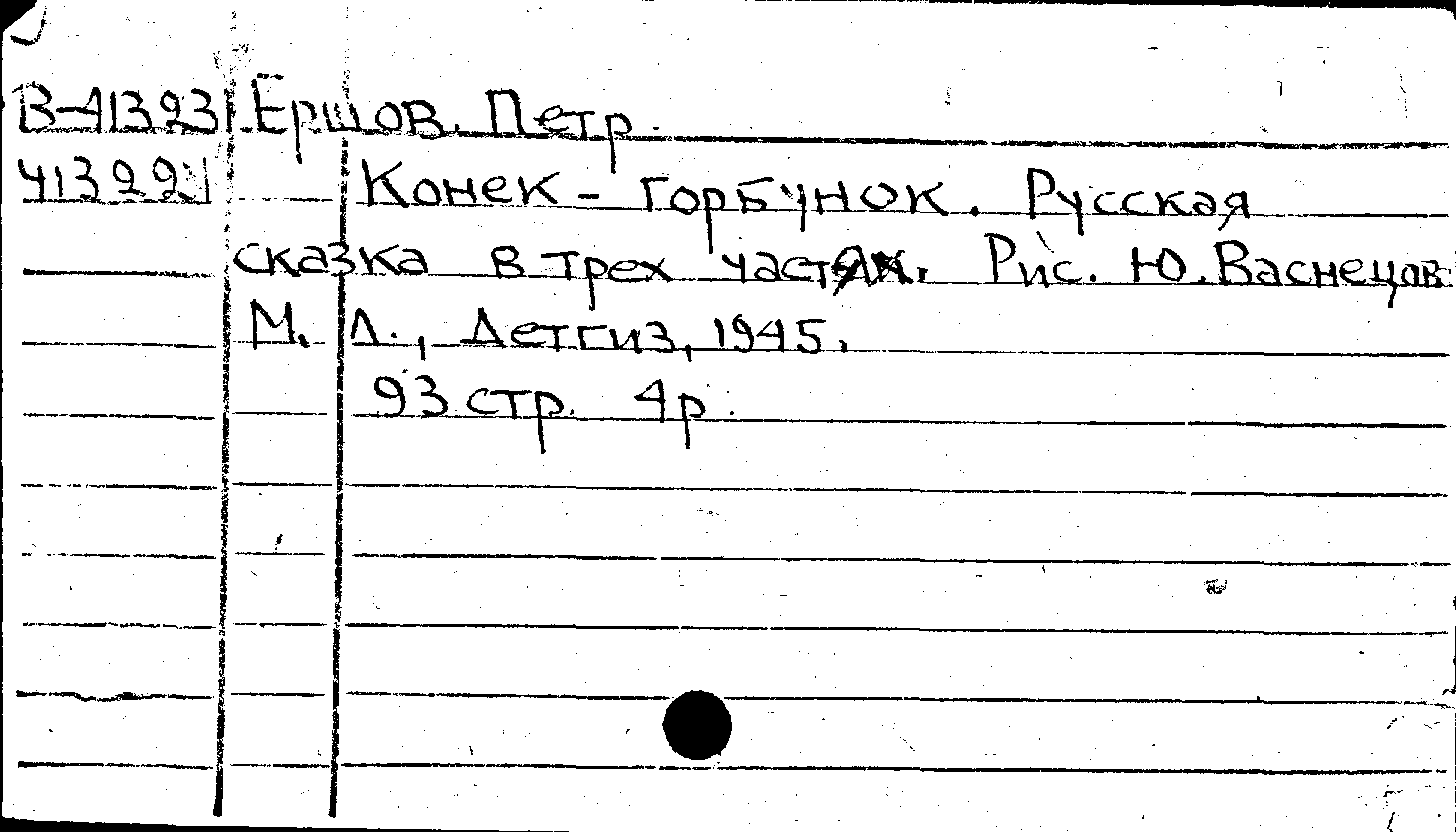 В-41323 Ершов, Петр.
Конек-горбунок. Русская
сказка в трех частях. Рис. Ю. Васнецов
М. Л., Детгиз, 1945.
93 стр. 4р.